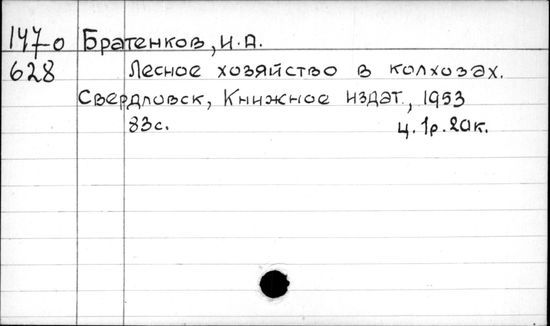 147-0 Братенков, И.А.
628 Лесное хозяйство в колхозах.
Свердловск, Книжное издат., 1953
83с. ц. 1р. 20к.